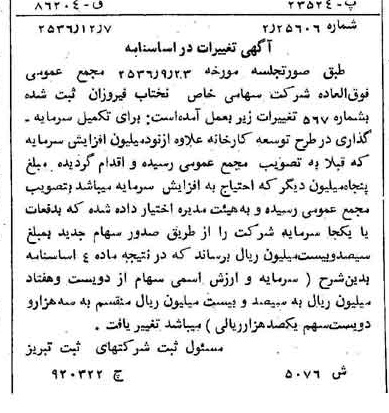 پ-۲۳۵۲۴ ق-۸۶۲۰۴
شماره ۲/۲۵۶۰۶ ۲۵۳۶/۱۲/۷
آگهی تغییرات در اساسنامه
طبق صورتجلسه مورخه ۲۵۳۶/۹/۲۳ مجمع عمومی
فوق‌العاده شرکت سهامی خاص نختاب فیروزان ثبت شده
بشماره ۵۶۷ تغییرات زیر بعمل آمده‌است: برای تکمیل سرمایه-
گذاری در طرح توسعه کارخانه علاوه ازنودمیلیون افزایش سرمایه
که قبلا به تصویب مجمع عمومی رسیده و اقدام گردیده مبلغ
پنجاه‌میلیون دیگر که احتیاج به افزایش سرمایه میباشد بتصویب
مجمع عمومی رسیده و به‌هیئت مدیره اختیار داده شده که بدفعات
یا یکجا سرمایه شرکت را از طریق صدور سهام جدید بمبلغ
سیصدوبیست‌میلیون ریال برساند که در نتیجه ماده ٤ اساسنامه
بدین‌شرح ( سرمایه و ارزش اسمی سهام از دویست وهفتاد
میلیون ریال به سیصد و بیست میلیون ریال منقسم به سه‌هزارو
دویست‌سهم یکصدهزارریالی ) میباشد تغییر یافت .
مسئول ثبت شرکتهای ثبت تبریز
ش ۵۰۷۶ ج ۹۲۰۳۲۲